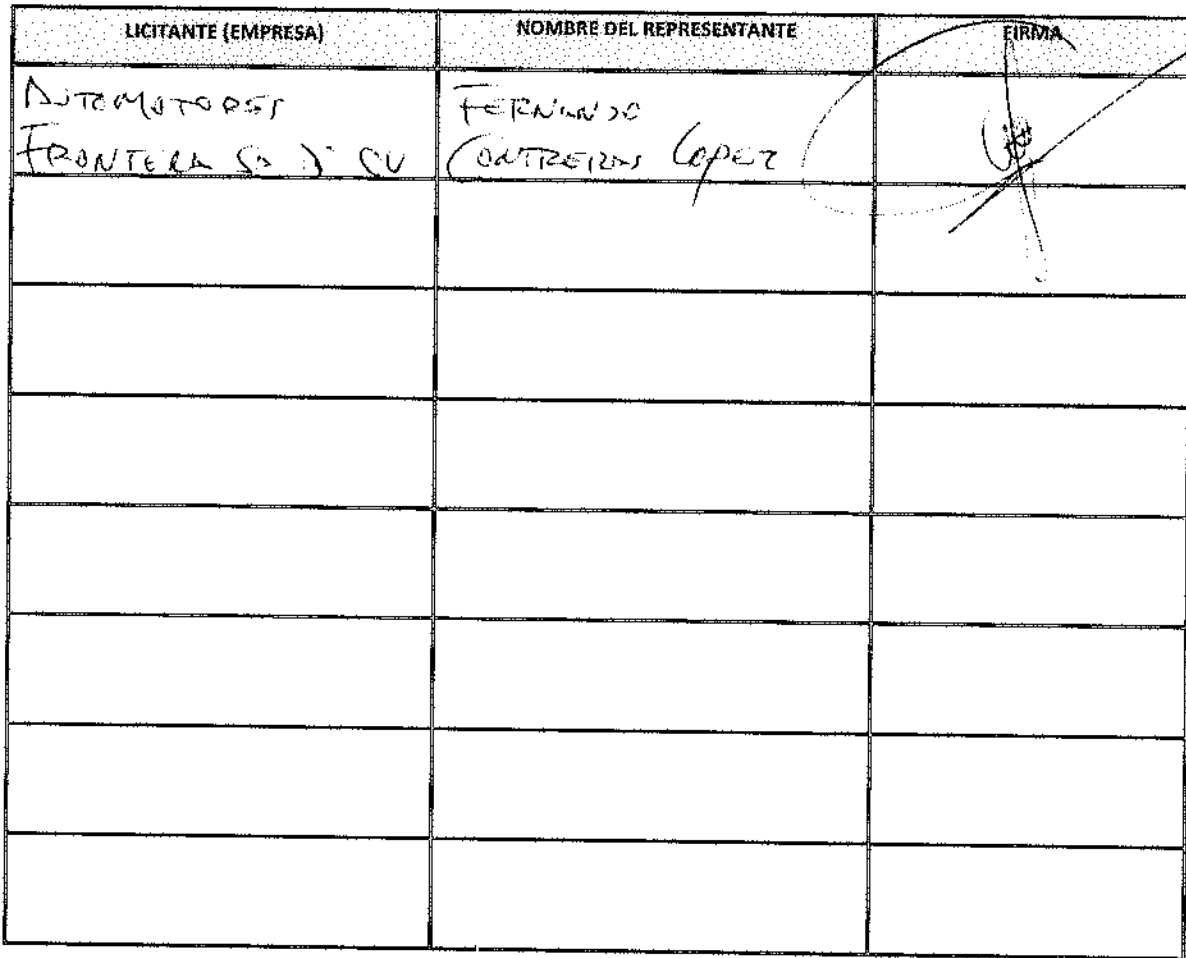 LICITANTE (EMPRESA) NOMBRE DEL REPRESENTANTE FIRMA
AUTOMOTORES FERNANDO
FRONTERA SA D CV CONTRERAS LOPEZ